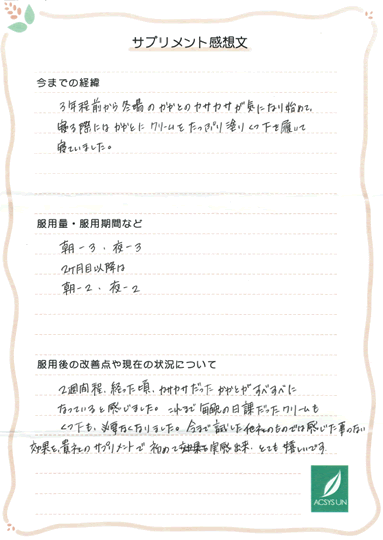 サプリメント感想文
今までの経緯
3年程前から冬場のかかとのカサカサが気になり始めて、
寝る際にはかかとにクリームをたっぷり塗りくつ下を履いて
寝ていました。
服用量・服用期間など
朝－3．夜－3
2ヶ月目以降は
朝－2．夜－2
服用後の改善点や現在の状況について
2週間程、経った頃、カサカサだったかかとがすべすべに
なっていると感じました。これまで毎晩の日課だったクリームも
くつ下も、必要なくなりました。今まで試した他社のものでは感じた事のない
効果を、貴社のサプリメントで初めて実感出来、とても嬉しいです
ACSYSUN